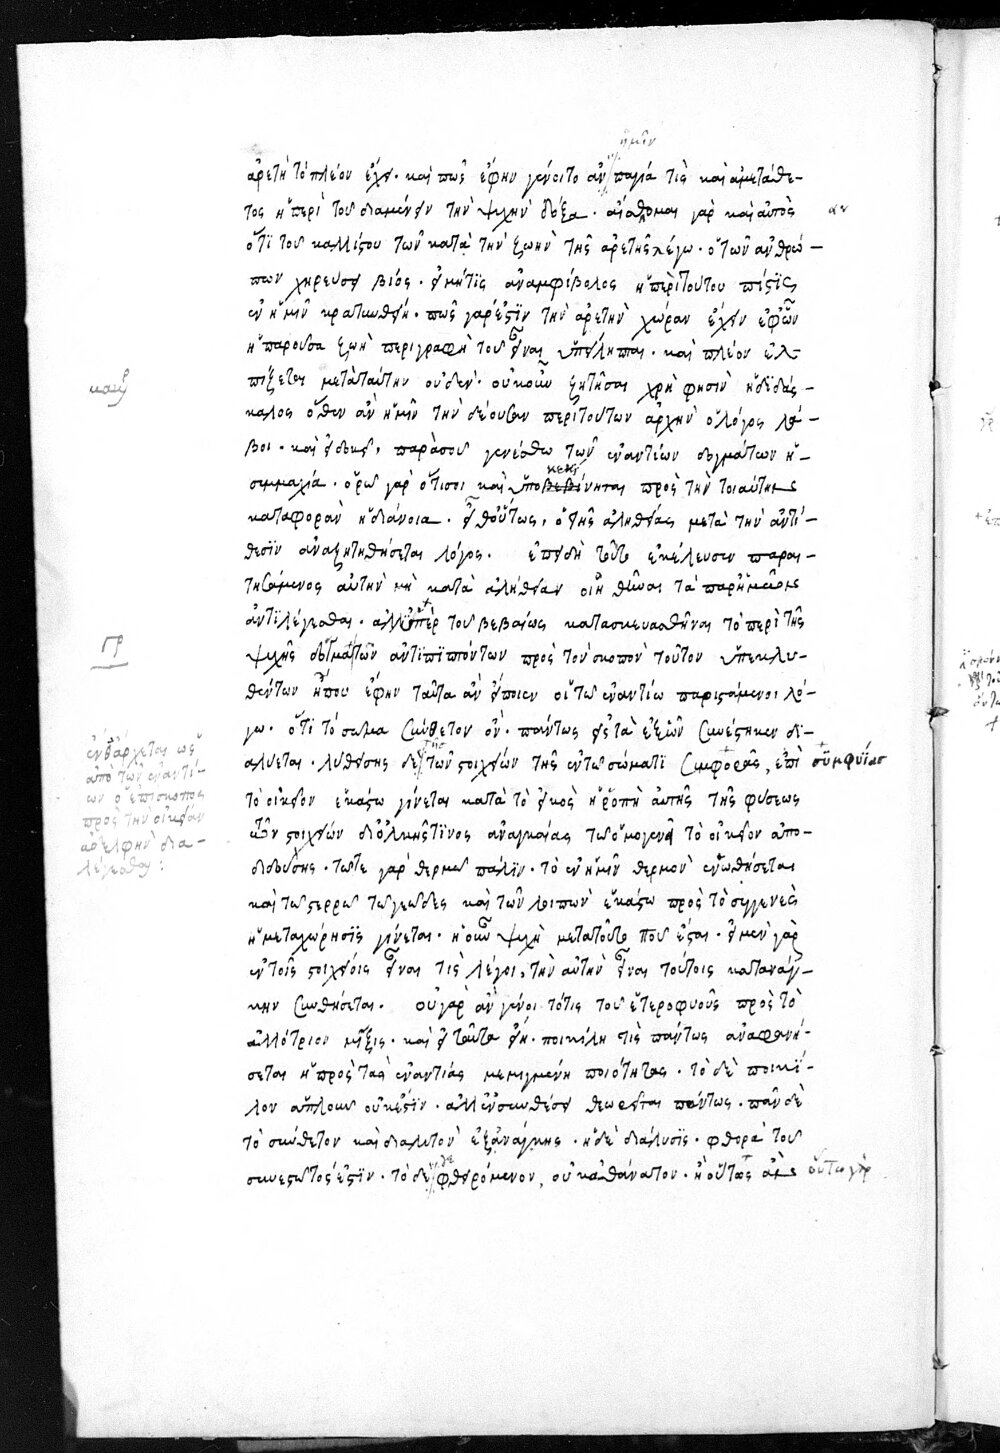 ἡμῖν
ἀρετὴ τὸ πλέον ἔχει. καὶ πῶς ἔφην γένοιτο ἂν παγία τὶς καὶ ἀμετάθε-
τος ἡ περὶ τοῦ διαμένειν τὴν ψυχὴν δόξα. αἰσθομαι γὰρ καὶ αὐτὸς
ὅτι τοῦ καλλίστου τῶν κατὰ τὴν ζωὴν τῆς ἀρετῆς λέγω. ὁ τῶν ἀνθρώ-
πων χηρεύσει βίος. εἰ μήτις ἀναμφίβολος ἡ περὶ τούτου πίστις
ἐν ἡμῖν κρατυνθείη. πῶς γάρ ἐστιν τὴν ἀρετὴν χώραν ἔχειν ἐφ ὧν
ἡ παροῦσα ζωὴ περιγραφὴ τοῦ εἶναι ὑπείληπται. καὶ πλέον ἐλ-
πίζεται μετὰ ταύτην οὐδέν. οὐκοῦν ζητῆσαι χρὴ φησὶν ἡ διδάσ-
καλος ὅθεν ἂν ἡμῖν τὴν δέουσαν περὶ τούτων ἀρχὴν ὁ λόγος λά-
βοι. καὶ εἰ δοκεῖ, παρὰ σοῦ γενέσθω τῶν ἐναντίων δογμάτων ἡ
συμμαχία. ὁρῶ γὰρ ὅτι σοι καὶ ὑποβεβίνηται πρὸς τὴν τοιαύτην
κεκί
καταφορὰν ἡ διάνοια. εἶθ οὕτως, ὁ τῆς ἀληθείας μετὰ τὴν ἀντί-
θεσιν ἀναζητηθήσεται λόγος. ἐπειδὴ τοῦτο ἐκέλευσεν παραι-
τησάμενος αὐτὴν μὴ κατὰ ἀλήθειαν οἰηθῆναι τὰ παρ ἡμῶν
ἀντιλέγεσθαι. ἀλλ ὑπὲρ τοῦ βεβαίως κατασκευασθῆναι τὸ περὶ τῆς
ψυχῆς δόγμα τῶν ἀντιπιπτόντων πρὸς τὸν σκοπὸν τοῦτον ὑπεκλυ-
θέντων ἤπου ἔφην ταῦτα ἂν εἴποιεν οἱ τῶ ἐναντίω παριστάμενοι λό-
γω. ὅτι τὸ σῶμα σύνθετον ὂν. πάντως εἰς τὰ ἐξ ὧν συνέστηκεν δι-
αλύεται. λυθείσης δὲ τῶν στοιχείων τῆς ἐν τῶ σώματι συμφορᾶς, ἐπὶ σϋμφυΐας
τὸ οἰκεῖον ἑκάστω γίνεται κατὰ τὸ εἰκὸς ἡ ῥοπὴ αὐτῆς τῆς φύσεως
τῶν στοιχείων δι ὁλκῆς τινος ἀναγκαίας τῶ ὁμογενεῖ τὸ οἰκεῖον ἀπο-
διδούσης. τῶ τε γὰρ θερμῶ πάλιν. τὸ ἐν ἡμῖν θερμὸν ἑνωθήσεται
καὶ τῶ στερρῶ τὸ γεῶδες καὶ τῶν λοιπῶν ἑκάστω πρὸς τὸ συγγενὲς
ἡ μεταχώρησις γίνεται. ἡ οὖν ψυχὴ μετὰ τοῦτο ποῦ ἔσται. εἰ μὲν γὰρ
ἐν τοῖς στοιχείοις εἶναι τὶς λέγοι, τὴν αὐτὴν εἶναι τούτοις κατανάγ-
κην συνθήσεται. οὐ γὰρ ἂν γένοι τό τις τοῦ ἑτεροφυοῦς πρὸς τὸ
ἀλλότριον μῖξις. καὶ εἰ ταῦτα εἴη. ποικίλη τὶς πάντως ἀναφανή-
σεται ἡ πρὸς τὰς ἐναντίας μεμιγμένη ποιότητας. τὸ δὲ ποικί-
λον ἁπλοῦν οὐκ ἔστιν. ἀλλ ἐν συνθέσει θεωρεῖται πάντως. πᾶν δὲ
τὸ σύνθετον καὶ διαλυτὸν ἐξ ἀνάγκης. ἡ δὲ διάλυσις. φθορὰ τοῦ
συνεστῶτός ἐστιν. τὸ δὲ φθειρόμενον, οὐκ ἀθάνατον. ἢ οὕτως οὕτω γὰρ
ἐνθ ἄρχεται ὡς
ἀπὸ τῶν ἐναντί-
ων ὁ ἐπίσκοπος
πρὸς τὴν οἰκείαν
ἀδελφὴν δια-
λέγεσθαι: